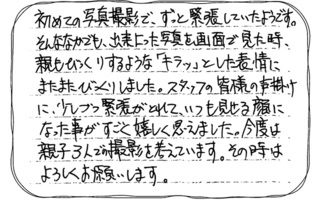 初めての写真撮影で、ずっと緊張していたようです。
そんななかでも、出来上った写真を画面で見た時、
親もびっくりするような「キラッ」とした表情に
またまたびっくりしました。スタッフの皆様の声掛け
に、少しづつ緊張がとれて、いつも見せる顔に
なった事がすごく嬉しく思えました。今度は
親子3人での撮影を考えています。その時は
よろしくお願いします。